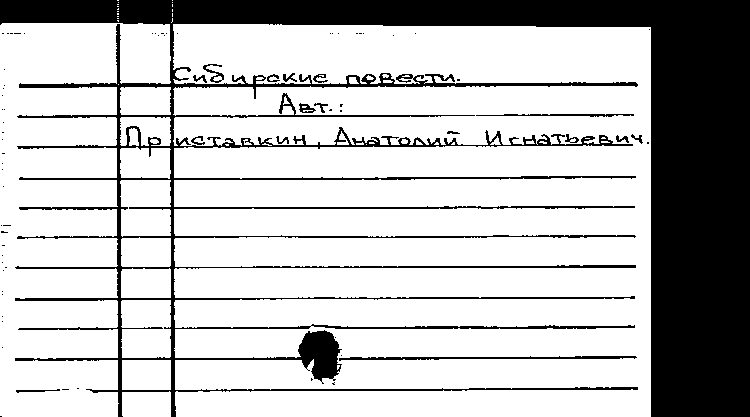 Сибирские повести.
Авт.:
Приставкин, Анатолий Игнатьевич.